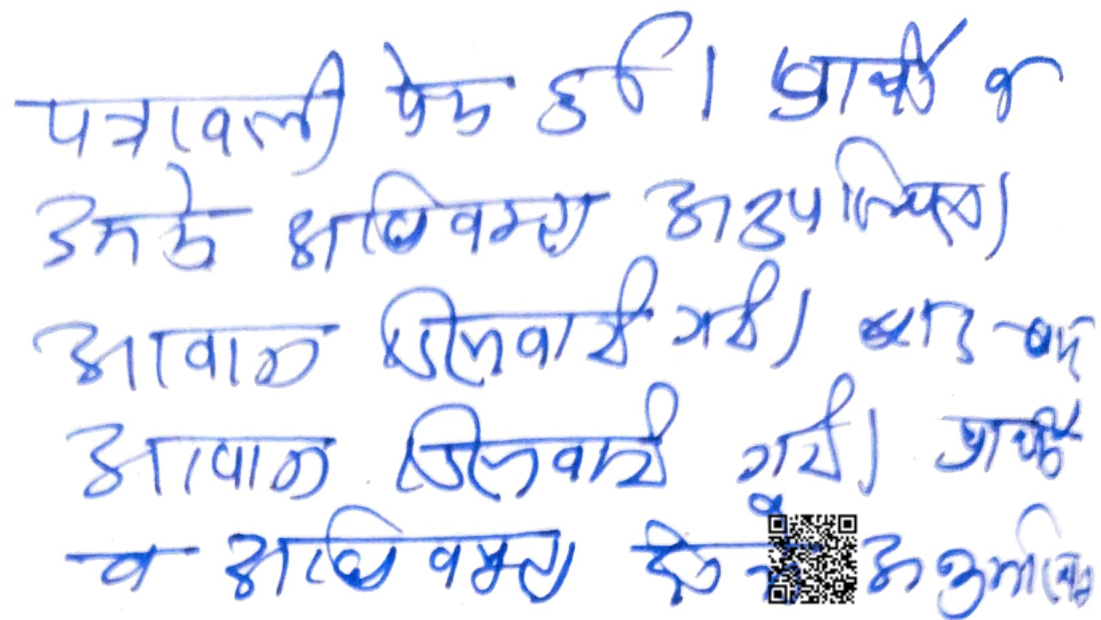 पत्रावली पेश हुई। प्रार्थी व
उनके अधिवक्ता अनुपस्थित।
आवाज दिलवायी गयी। बार-बार
आवाज दिलवायी गयी। प्रार्थी
व अधिवक्ता अनुपस्थित